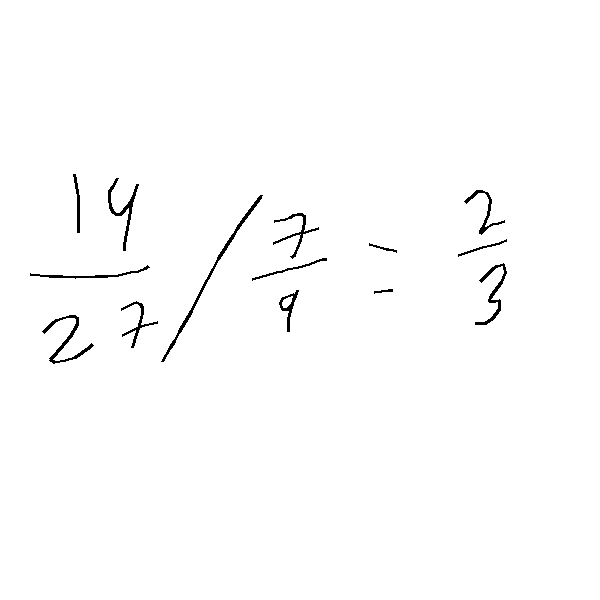 14/27 / 7/9 = 2/3